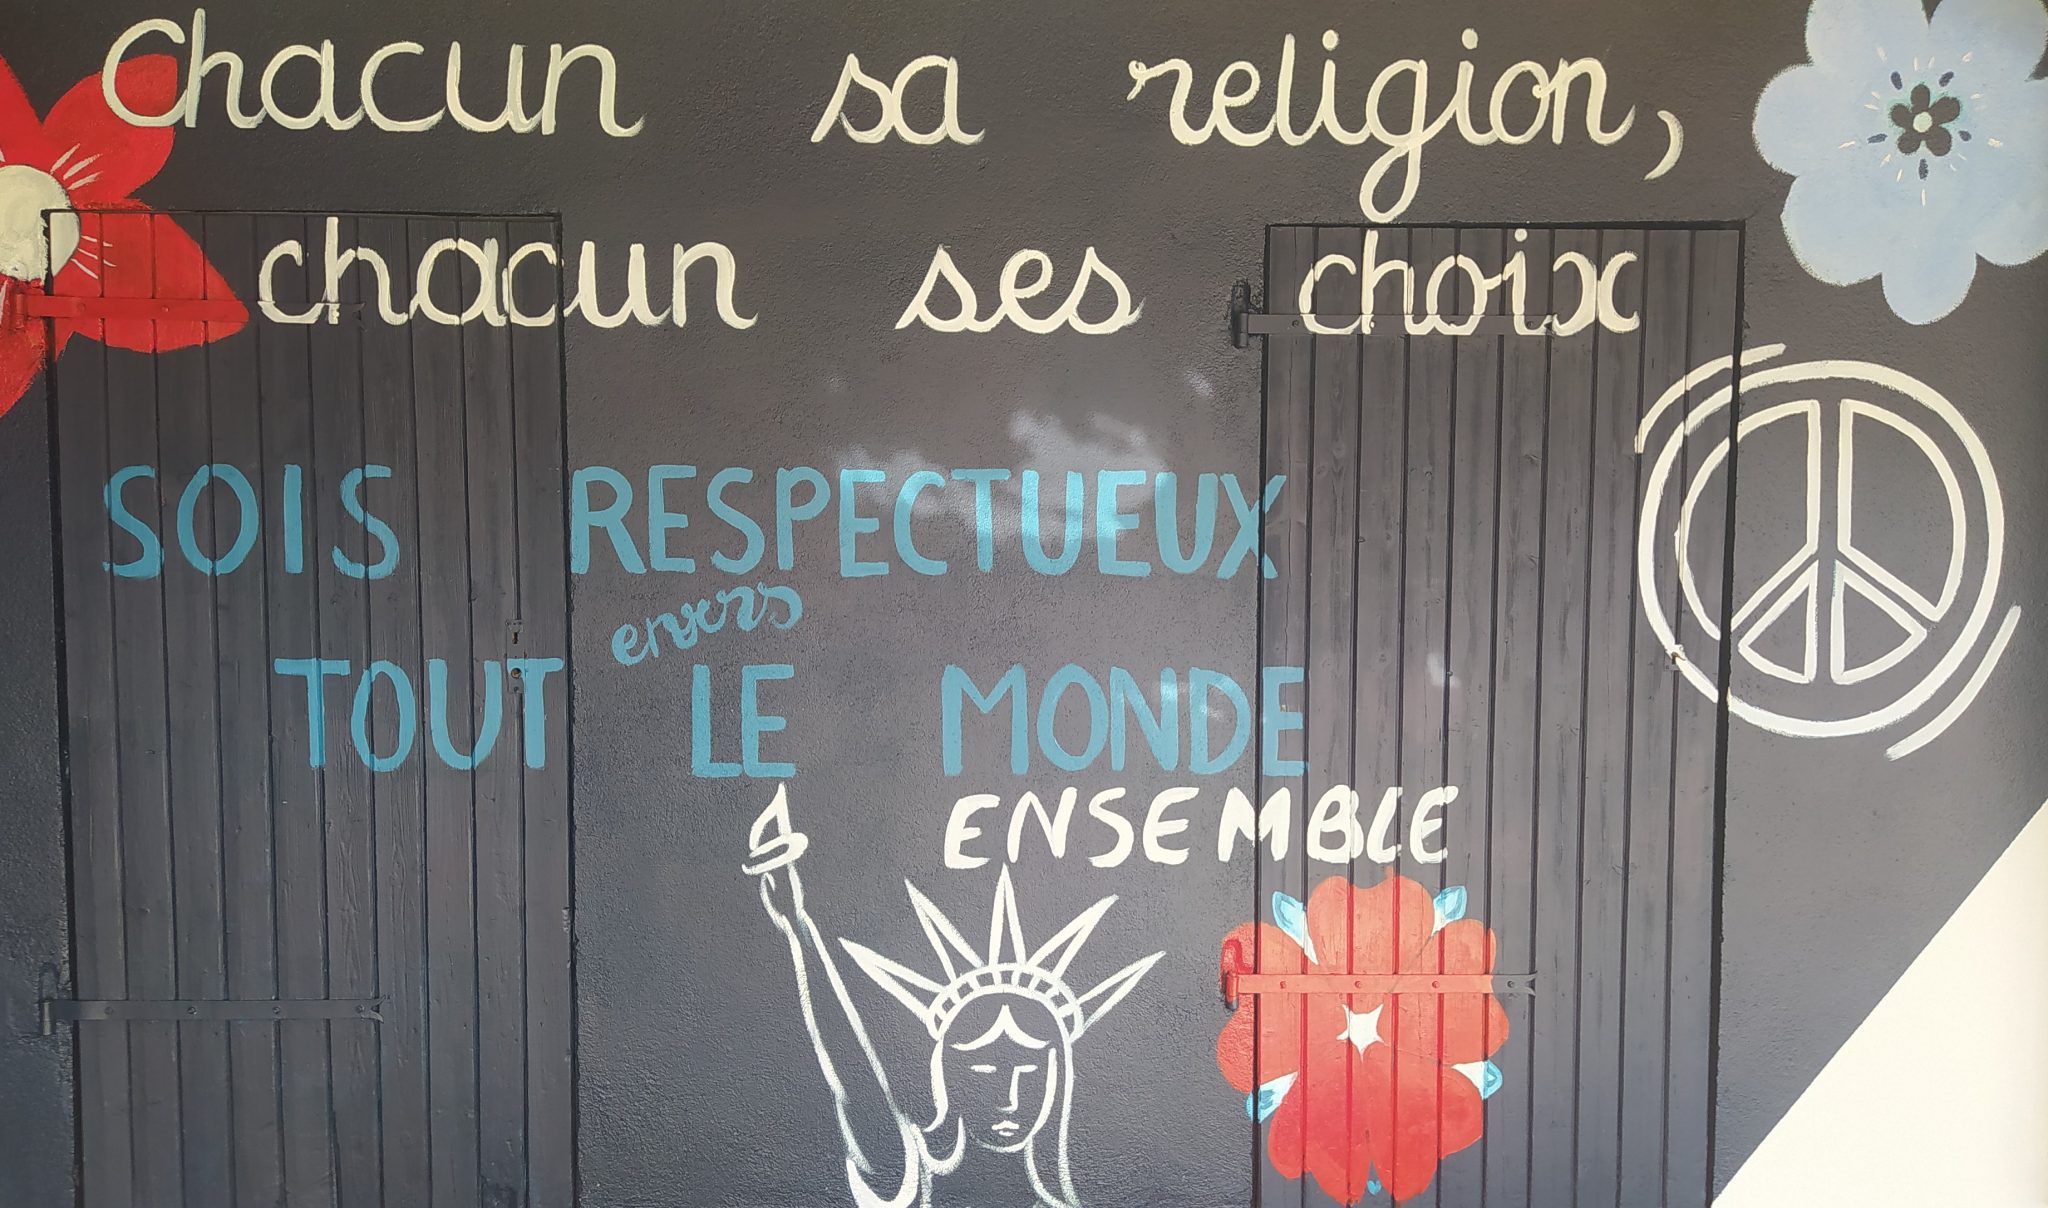 Chacun sa religion,
chacun ses choix
SOIS RESPECTUEUX
envers
TOUT LE MONDE
ENSEMBLE